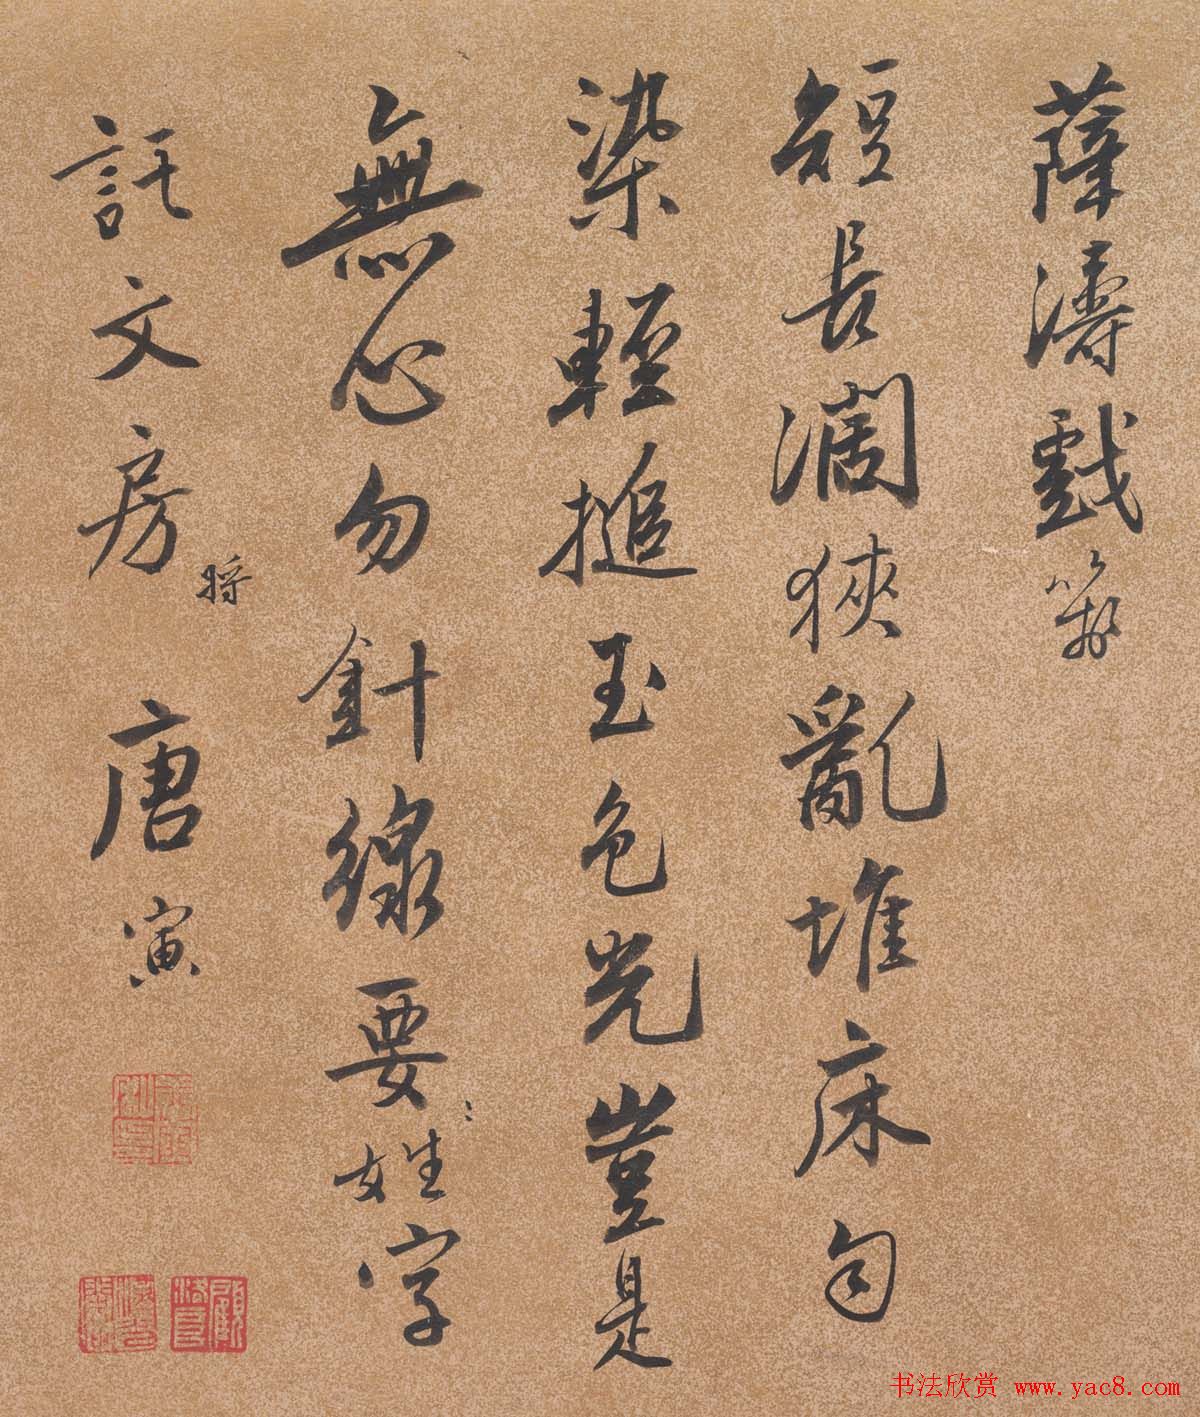 薛濤戲箋
短長濶狹亂堆床勻
染輕搥玉色光豈是
無心勿針線要姓字
將
託文房 唐寅
书法欣赏 www.yac8.com